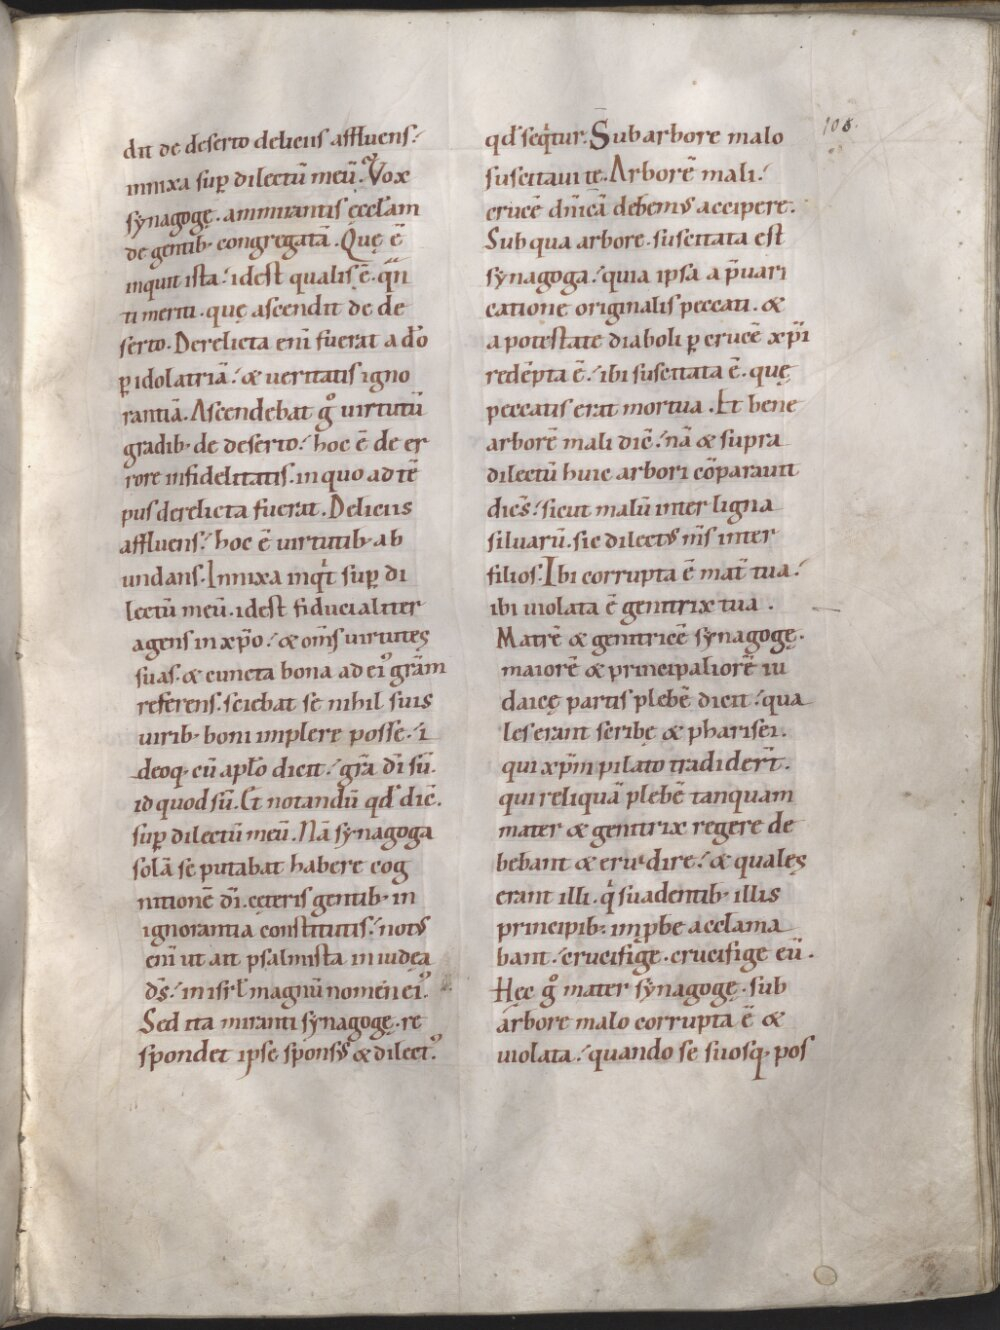 dit de deserto deliciis affluens.'
innixa sup̱ dilectū meū. Vox
synagogę. ammirantis ęccl̄am
de gentib; congregatā. Quę ē̄
inquit ista.' idest qualis ē. q̄n
ti meriti. quę ascendit de de
serto. Derelicta enī fuerat a dō
p̱ idolatriā.' & ueritatis igno
rantiā. Ascendebat gͦ uirtutū
gradib; de deserto.' hoc ē de er
rore infidelitatis. in quo ad tē
pus derelicta fuerat. Deliciis
affluens.' hoc ē uirtutib; ab
undans. Innixa inqͥt sup̱ di
lectū meū. idest fiducialiter
agens in xp̄o.' & om̄s uirtutes
suas. & cuncta bona ad eiꝰ grām
referens. sciebat se nihil suis
uirib; boni implere posse.' i
deoq; cū apl̄o dicit.' grā dī sū.
id quod sū. Et notandū qđ dic̄.
sup̱ dilectū meū. Nā synagoga
solā se putabat habere cog
nitionē dī. cęteris gentib; in
ignorantia constitutis.' notꝰ
enī ut ait psalmista in iudęa
d̄s.' in isrl̄ magnū nomen eiꝰ.
Sed ita miranti synagogę. re
spondet ipse sponsꝰ & dilectꝰ
qđ seqͥtur. Sub arbore malo
suscitaui te. Arborē mali.'
crucē dn̄icā debemꝰ accipere.
Sub qua arbore. suscitata est
synagoga.' quia ipsa a p̄uari
catione originalis peccati. &
a potestate diaboli p̱ crucē xp̄i
redēpta ē.' ibi suscitata ē. quę
peccatis erat mortua. Et bene
arborē mali dic̄.' nā & supra
dilectū huic arbori cōparauit
dicēs.' sicut malū inter ligna
siluarū. sic dilectꝰ m̄s inter
filios. Ibi corrupta ē mat̄ tua.'
ibi uiolata ē genitrix tua.
Matrē & genitricē synagogę.
maiorē & principaliorē iu
daicę partis plebē dicit.' qua
les erant scribę & pharisei.
qui xp̄m pilato tradider̄t.
qui reliquā plebē tanquam
mater & genitrix regere de
bebant & erudire.' & quales
erant illi. qͥ suadentib; illis
principib;. imp̱be acclama
bant.' crucifige. crucifige eū.
Hęc gͦ mater synagogę. sub
arbore malo corrupta ē &
uiolata.' quando se suosq; pos
108.